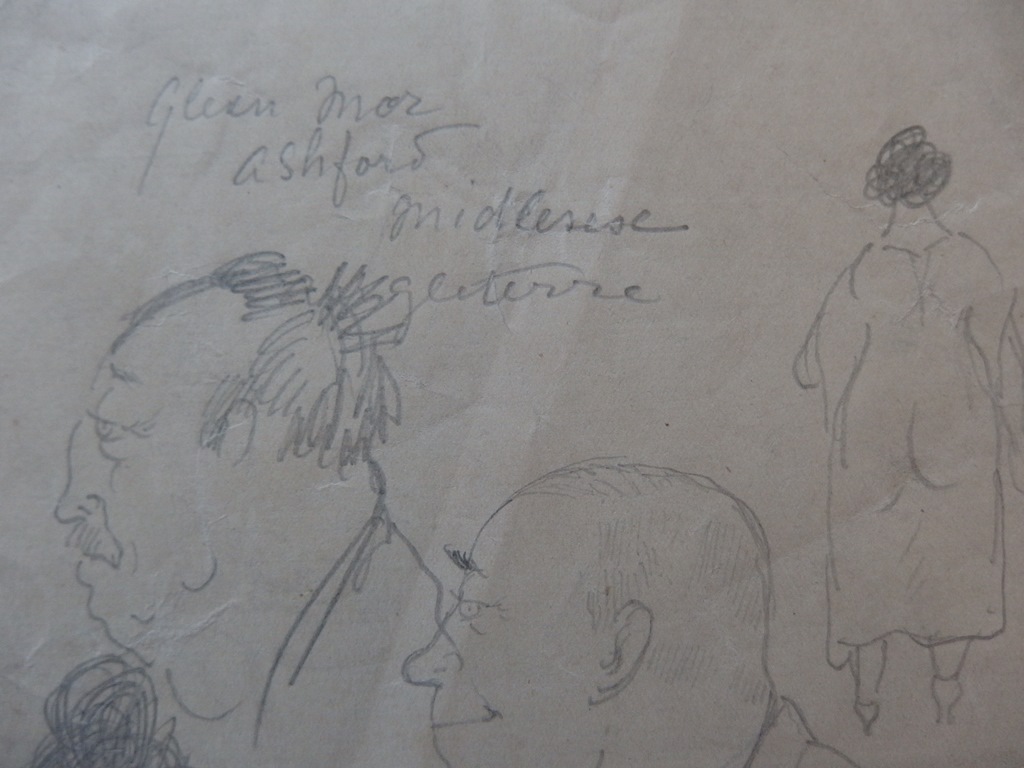 Glean Mor
ashford
Midlesexe
Angleterre